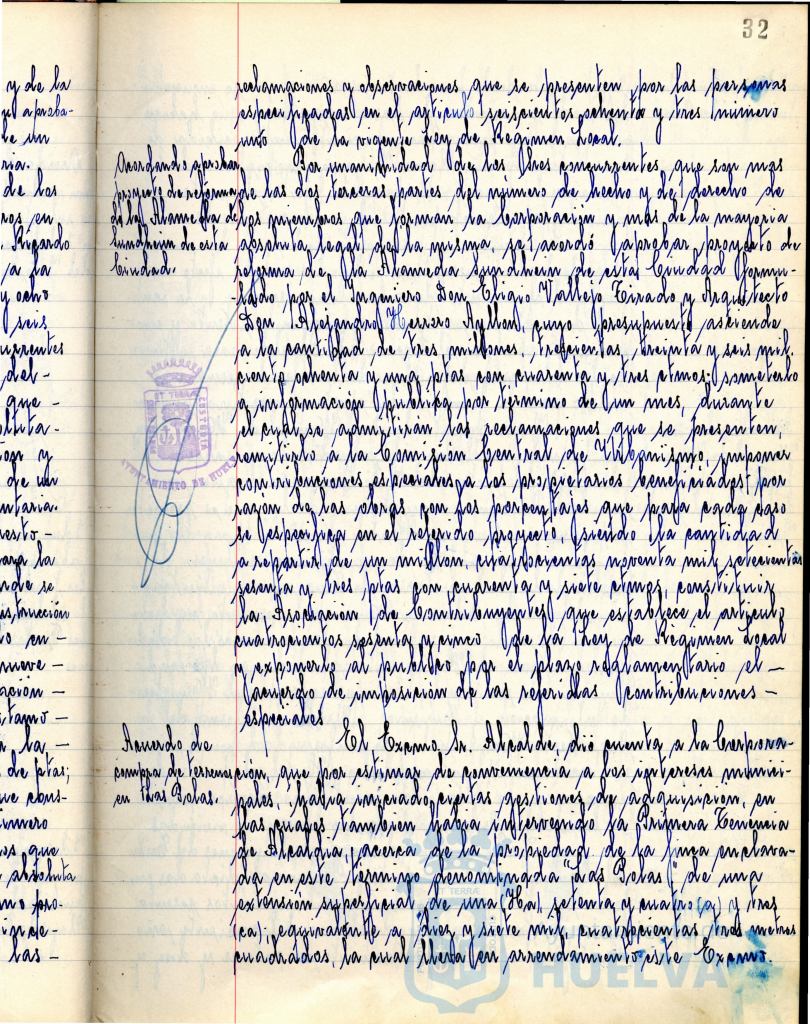 32
y de la
aproba-
de un
ria.
de los
ros en
Ricardo
a la
y ocho
seis
del-
que-
y
de un
ntaria.
esto-
para la
nde se
en-
nueve-
ación-
tamo-
la,-
de ptas;
ue cons-
número
os que
absoluta
pro-
las-
reclamaciones y observaciones que se presenten por las personas
especificadas en el artículo seiscientos ochenta y tres número
uno de la vigente Ley de Régimen Local.
Acordando aprobar
proyecto de reforma
de la Alameda de
Sundheim de esta
Ciudad.
Por unanimidad de los Sres concurrentes que son mas
de las dos terceras partes del número de hecho y de derecho de
los miembros que forman la Corporación y más de la mayoria
absoluta legal de la misma, se acordó aprobar proyecto de
reforma de la Alameda Sundheim de esta Ciudad formu-
lado por el Ingeniero Don Eligio Vallejo Tirado y Arquitecto
Don Alejandro Herrero Ayllon, cuyo presupuesto asciende
a la cantidad de tres millones, trescientas, treinta y seis mil.
ciento ochenta y una ptas con, cuarenta y tres ctmos; someterlo
a información pública por termino de un mes, durante
el cual se admitirán las reclamaciones que se presenten,
remitirlo a la Comisión Central de Urbanismo, imponer
contribuciones especiales a los propietarios beneficiados por
razón de las obras con los porcentajes que para cada caso
se especifica en el referido proyecto, siendo la cantidad
a repartir de un millón, cuatrocientas noventa mil, setecientas
sesenta y tres ptas con cuarenta y siete ctmos, constituir
la Asociación de Contribuyentes que establece el artículo
cuatrocientos sesenta y cinco de la Ley de Régimen Local
y exponerlo al público por el plazo reglamentario el-
acuerdo de imposición de las referidas contribuciones-
especiales
Acuerdo de
compra de terreno
en Las Bolas.
El Excmo, Sr. Alcalde, dió cuenta a la Corpora-
ción, que por estimar de conveniencia a los intereses munici-
pales, había iniciado ciertas gestiones de adquisición, en
las cuales tambien había intervenido la Primera Tenencia
de Alcaldia, acerca de la propiedad de la finca enclava-
da en este término denominada "Las Bolas" de una
extensión superficial de una (Ha), setenta y cuatro (a) y tres
(ca); equivalente a diez y siete mil cuatrocientos tres metros
cuadrados, la cual lleva en arrendamiento este Excmo.
AYUNTAMIENTO DE HUELVA
HUELVA